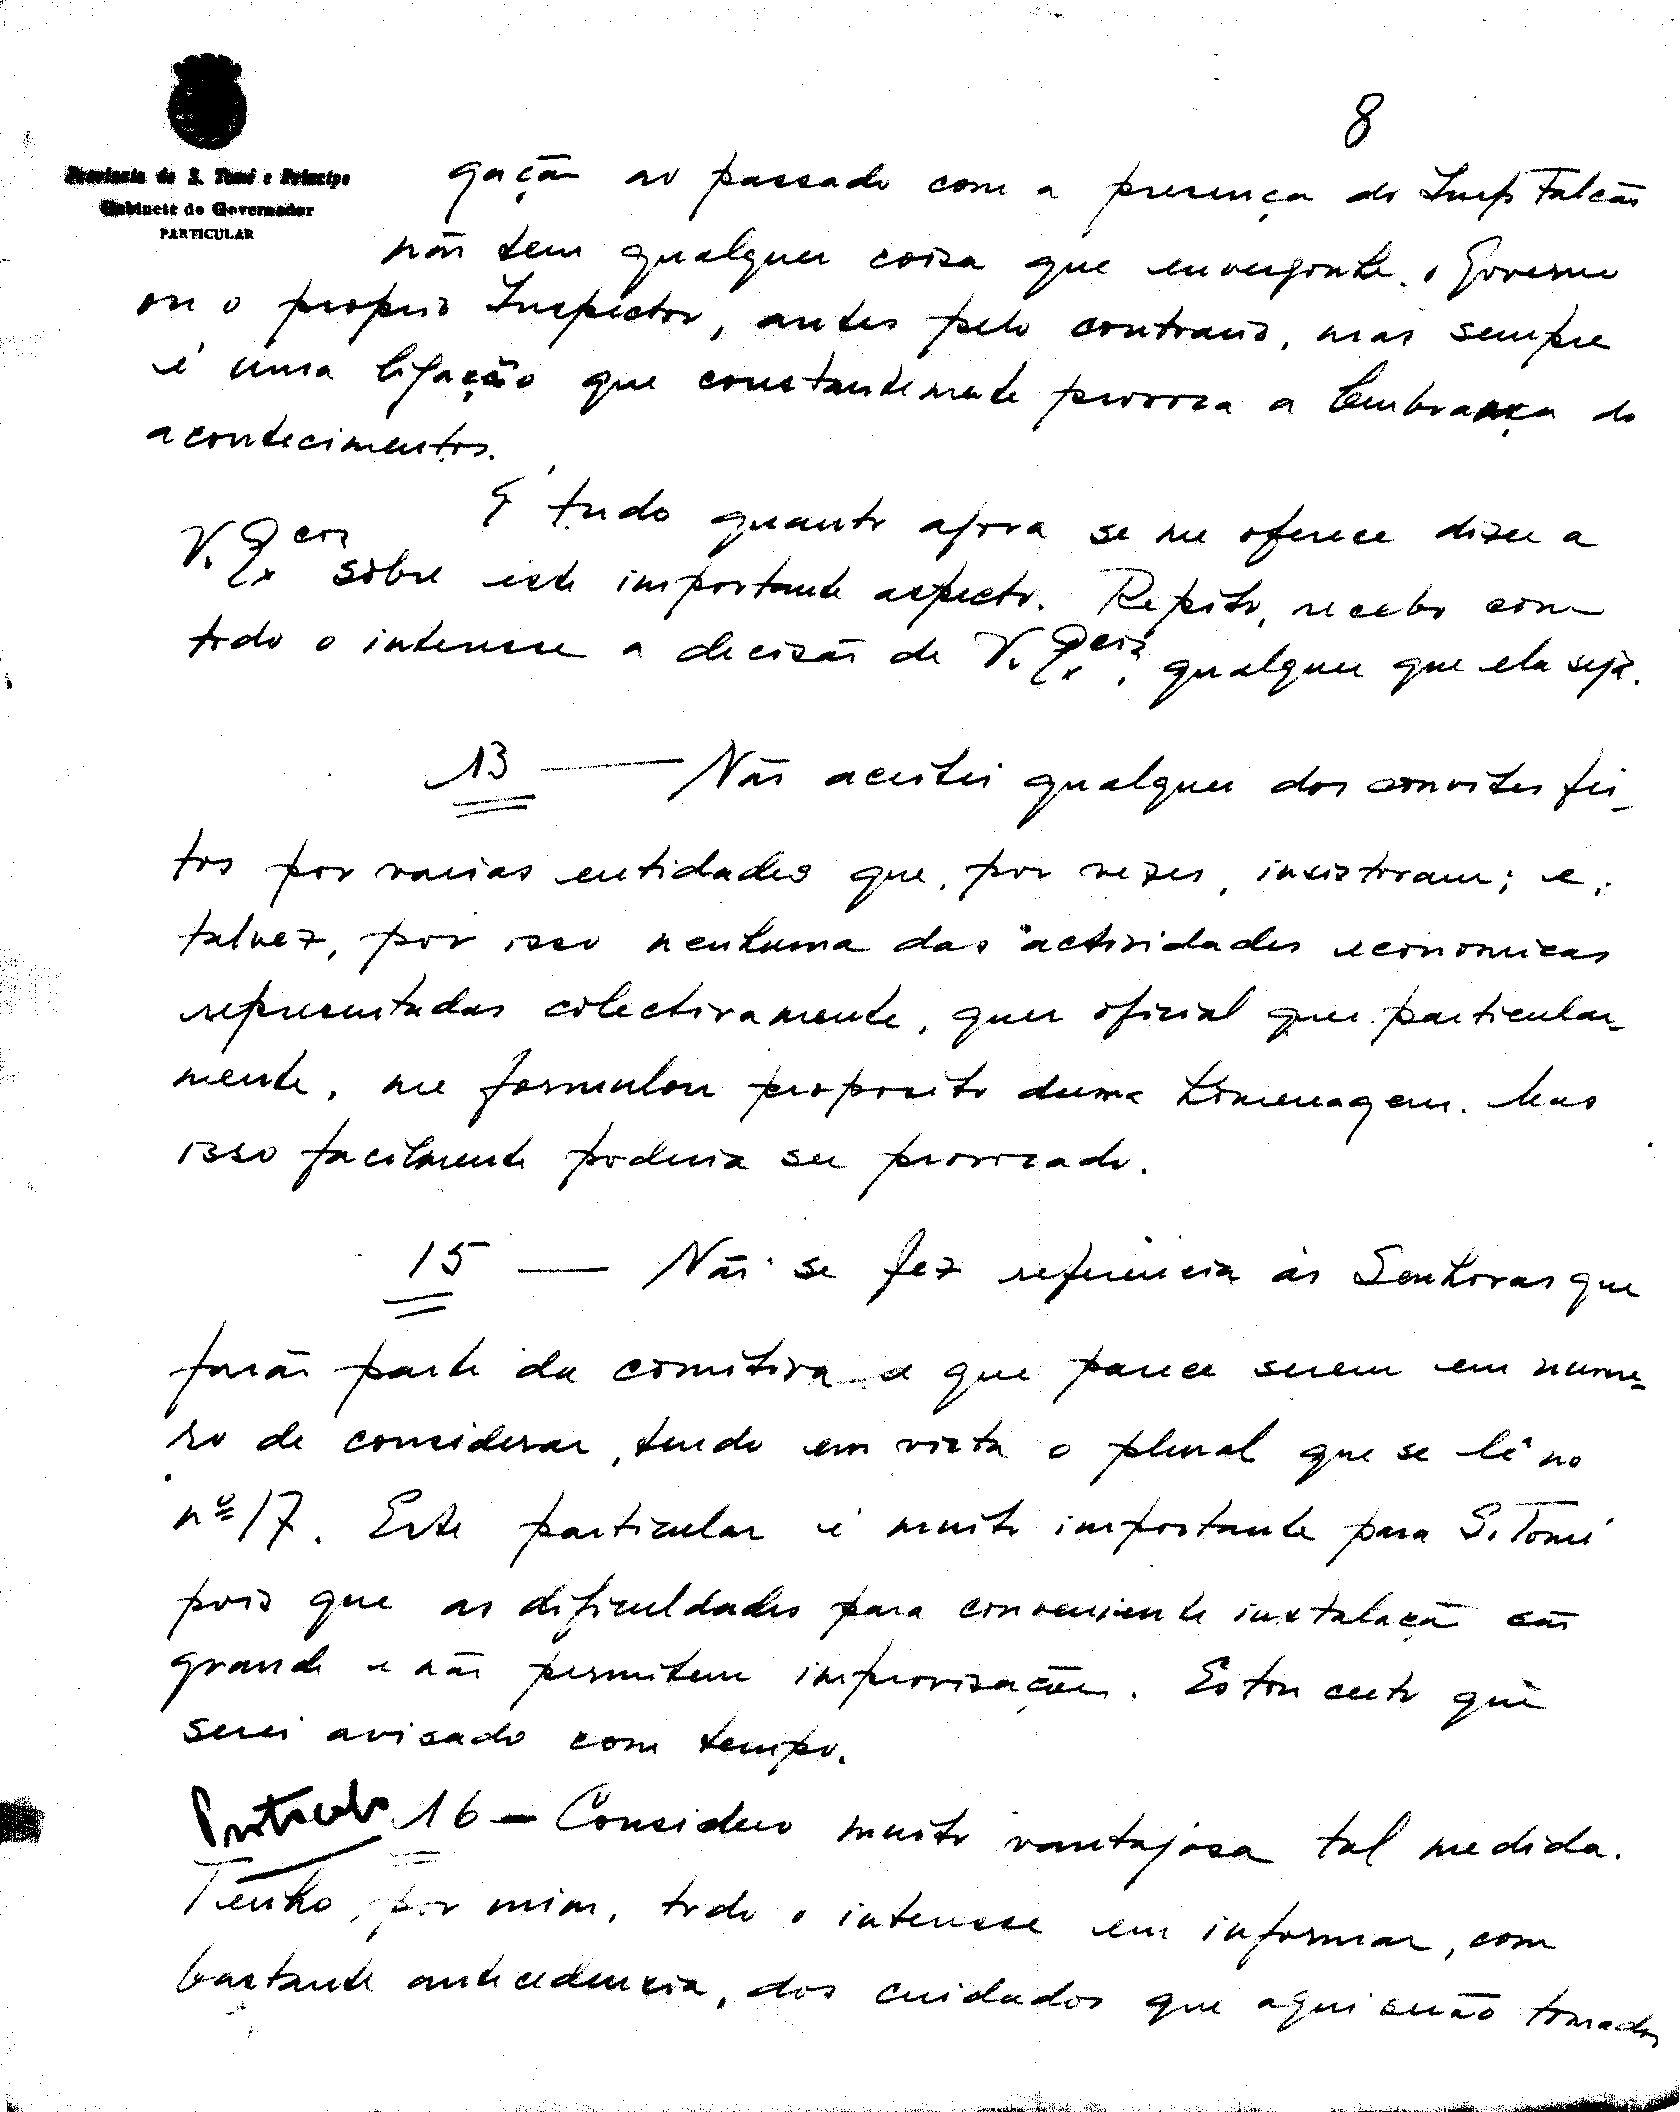 8
Provincia de S. Tomé e Principe
Gabinete do Governador
PARTICULAR
gação ao passado com a presença do Insp Falcão
não tem qualquer coisa que envergonhe o Governo
ou o proprio Inspector, antes pelo contrario, mas sempre
é uma ligação que constantemente provoca a lembrança do
acontecimentos.
É tudo quanto agora se me oferece dizer a
V. Ex.cia sobre este importante aspecto. Repito, recebo com
todo o interesse a decisão de V. Ex.cia, qualquer que ela seja.
13 — Não aceitei qualquer dos convites fei-
tos por varias entidades que, por vezes, insistiram; e,
talvez, por isso nenhuma das actividades economicas
representadas colectivamente, quer oficial quer particular-
mente, me formulou proposito duma homenagem. Mas
isso facilmente poderia ser provocado.
15 — Não se fez referencia ás Senhoras que
farão parte da comitiva e que parece serem em nume-
ro de considerar, tendo em vista o plural que se lê no
nº 17. Este particular é muito importante para S. Tomé
pois que as dificuldades para conveniente instalação são
grande e não permitem improvisações. Estou certo que
serei avisado com tempo.
Protocolo 16 - Considero muito vantajosa tal medida.
Tenho, por mim, todo o interesse em informar, com
bastante antecedencia, dos cuidados que aqui serão tomados